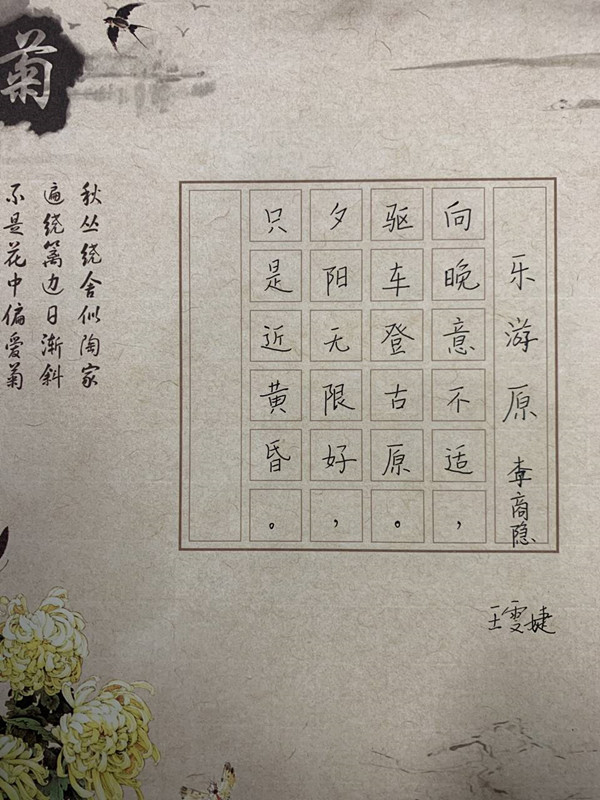 乐游原 李商隐
向晚意不适，
驱车登古原。
夕阳无限好，
只是近黄昏。
王雯婕
菊
秋丛绕舍似陶家
遍绕篱边日渐斜
不是花中偏爱菊